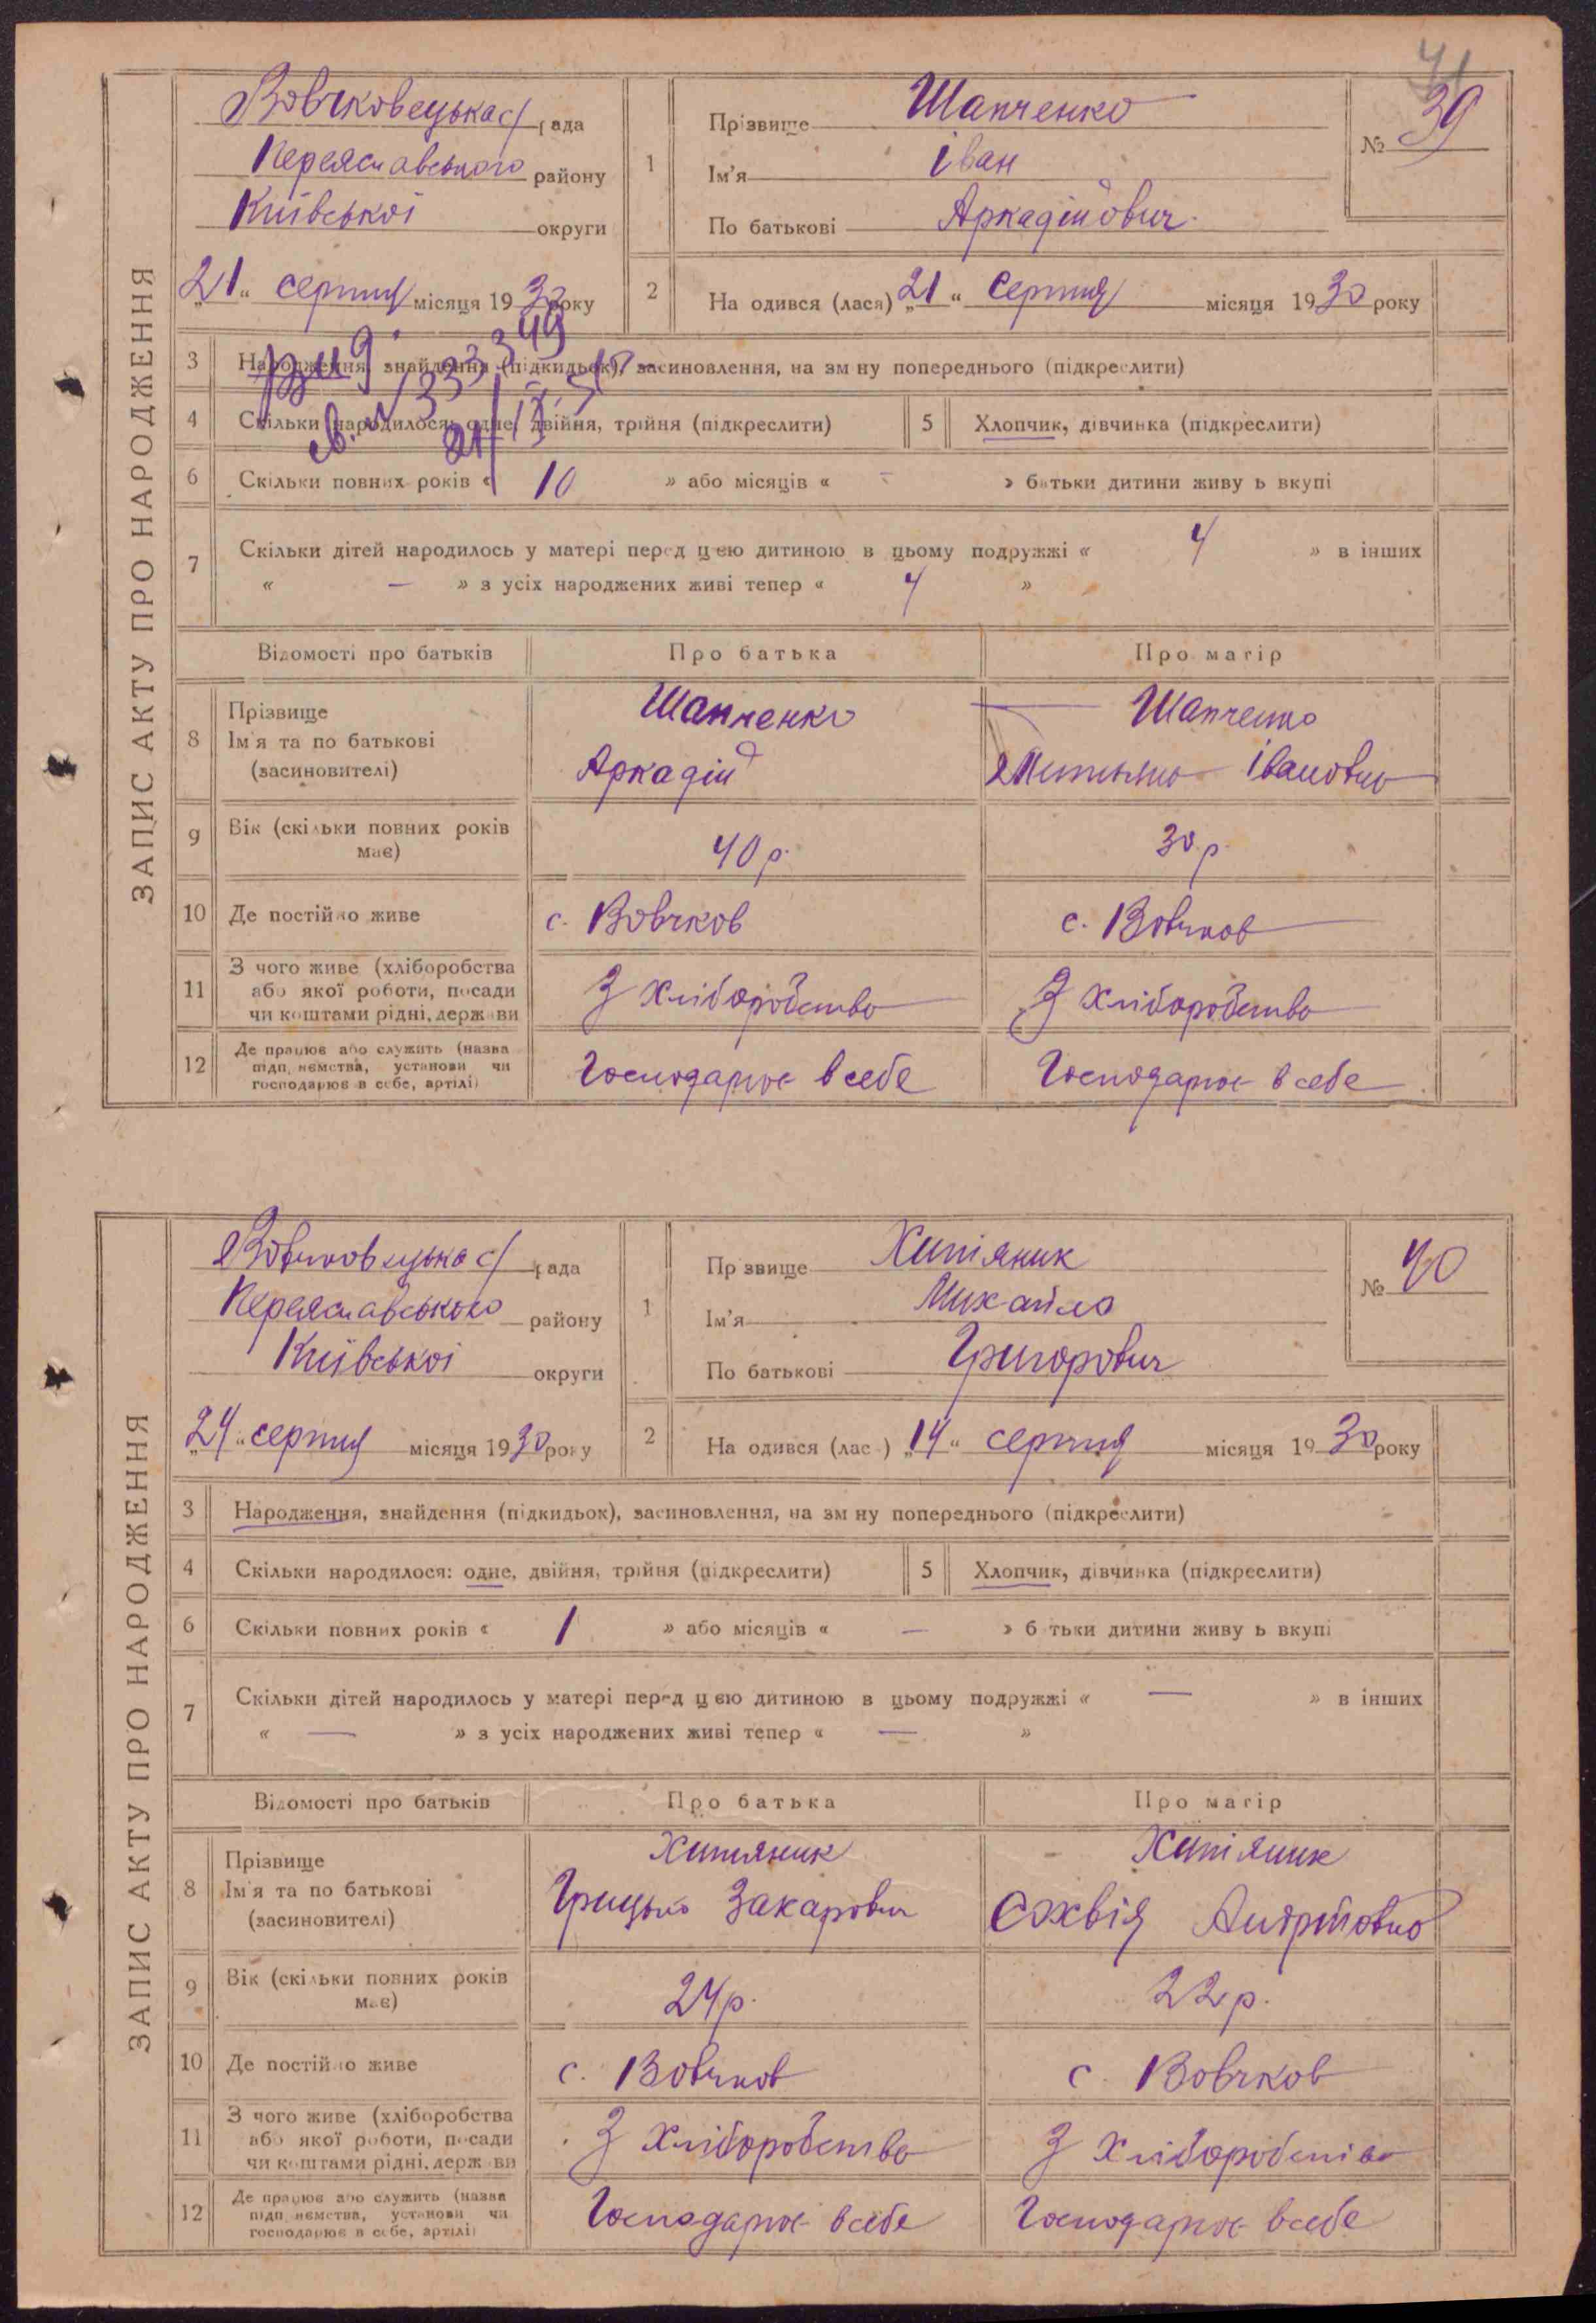 41
ЗАПИС АКТУ ПРО НАРОДЖЕННЯ
Вовчковецька с/рада
Переяславського району
Київської округи
„21“ серпня місяця 1930 року
1 Прізвище Шапченко
Ім'я Іван
По батькові Аркадійович
№ 39
2 На одився (лася) „21“ серпня місяця 1930 року
3 Народження, знайдення (підкидьок), засиновлення, на зм ну попереднього (підкреслити)
св. № 333349
4 Скільки народилося: одне, двійня, трійня (підкреслити) 5 Хлопчик, дівчинка (підкреслити)
6 Скільки повних років « 10 » або місяців « - » батьки дитини живу ь вкупі
7 Скільки дітей народилось у матері перед цею дитиною в цьому подружжі « 4 » в інших
« — » з усіх народжених живі тепер « 4 »
Відомості про батьків Про батька Про матір
8 Прізвище Шапченко Шапченко
Ім'я та по батькові Аркадій Івановна
(засиновителі)
9 Вік (скільки повних років має) 40 р. 30 р.
10 Де постійно живе с. Вовчков с. Вовчков
11 З чого живе (хліборобства або якої роботи, посади чи коштами рідні, держави З хліборобства З хліборобства
12 Де працює або служить (назва підп. ємства, установи чи господарює в себе, артілі) Господарює в себе Господарює в себе
ЗАПИС АКТУ ПРО НАРОДЖЕННЯ
Вовчковецька с/рада
Переяславського району
Київської округи
„24“ серпня місяця 1930 року
1 Пр звище Хитяник
Ім'я Михайло
По батькові Григорович
№ 40
2 На одився (лас ) „14“ серпня місяця 1930 року
3 Народження, знайдення (підкидьок), засиновлення, на зм ну попереднього (підкреслити)
4 Скільки народилося: одне, двійня, трійня (підкреслити) 5 Хлопчик, дівчинка (підкреслити)
6 Скільки повних років « 1 » або місяців « — » б тьки дитини живу ь вкупі
7 Скільки дітей народилось у матері перед цею дитиною в цьому подружжі « — » в інших
« — » з усіх народжених живі тепер « — »
Відомості про батьків Про батька Про матір
8 Прізвище Хитяник Хитяник
Ім'я та по батькові Грицько Захарович Сохвія
(засиновителі)
9 Вік (скільки повних років має) 24 р. 22 р.
10 Де постійно живе с. Вовчков с. Вовчков
11 З чого живе (хліборобства або якої роботи, посади чи коштами рідні, держ ви З хліборобства З хліборобства
12 Де працює або служить (назва підп. ємства, установи чи господарює в себе, артілі) Господарює в себе Господарює в себе